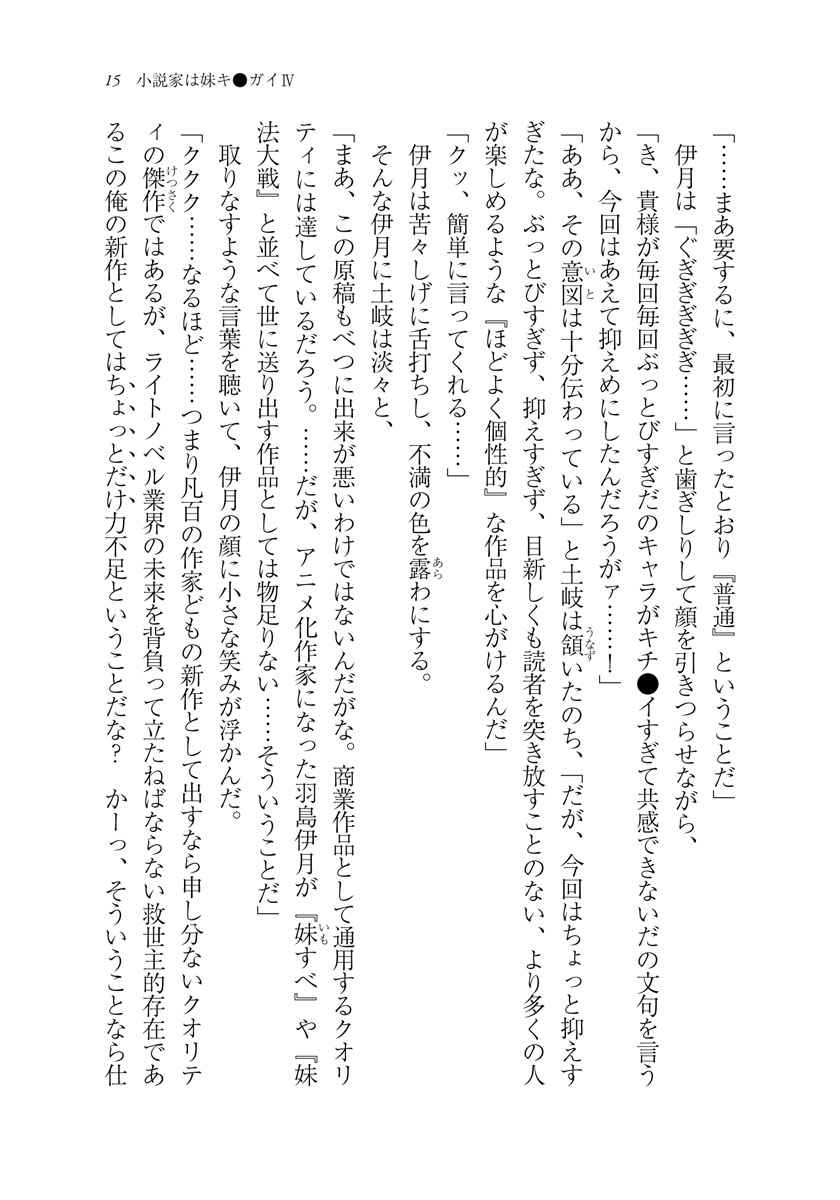 15　小説家は妹キ●ガイⅣ
「……まあ要するに、最初に言ったとおり『普通』ということだ」
　伊月は「ぐぎぎぎぎぎ……」と歯ぎしりして顔を引きつらせながら、
「き、貴様が毎回毎回ぶっとびすぎだのキャラがキチ●イすぎて共感できないだの文句を言う
から、今回はあえて抑えめにしたんだろうがァ……！」
「ああ、その意図は十分伝わっている」と土岐は頷いたのち、「だが、今回はちょっと抑えす
ぎたな。ぶっとびすぎず、抑えすぎず、目新しくも読者を突き放すことのない、より多くの人
が楽しめるような『ほどよく個性的』な作品を心がけるんだ」
「クッ、簡単に言ってくれる……」
　伊月は苦々しげに舌打ちし、不満の色を露わにする。
　そんな伊月に土岐は淡々と、
「まあ、この原稿もべつに出来が悪いわけではないんだがな。商業作品として通用するクオリ
ティには達しているだろう。……だが、アニメ化作家になった羽島伊月が『妹すべ』や『妹
法大戦』と並べて世に送り出す作品としては物足りない……そういうことだ」
　取りなすような言葉を聴いて、伊月の顔に小さな笑みが浮かんだ。
「ククク……なるほど……つまり凡百の作家どもの新作として出すなら申し分ないクオリテ
ィの傑作ではあるが、ライトノベル業界の未来を背負って立たねばならない救世主的存在であ
るこの俺の新作としてはちょっとだけ力不足ということだな？　かーっ、そういうことなら仕